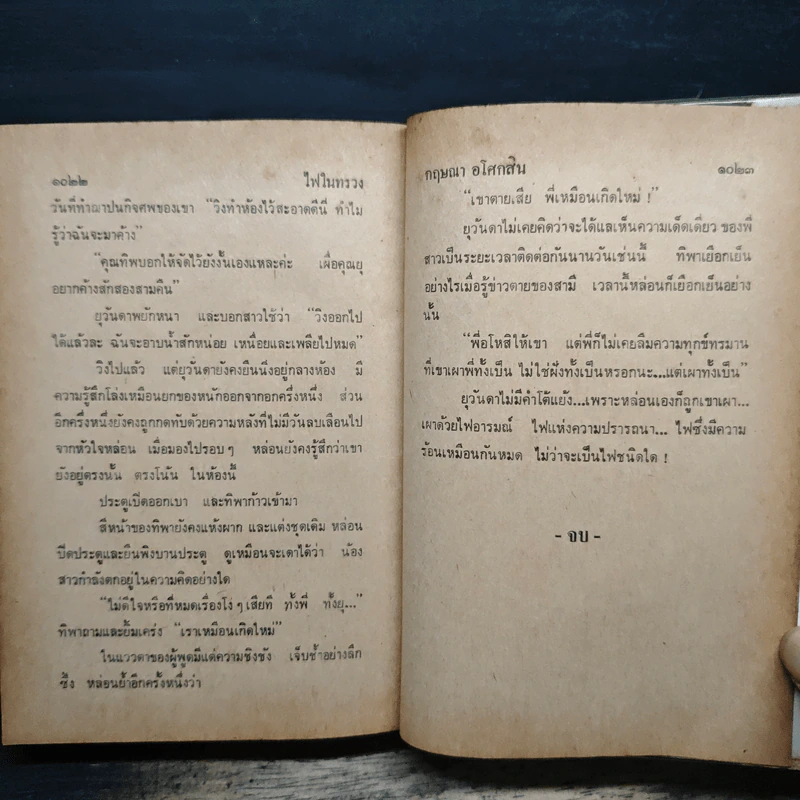 ๑๐๒๒ ไฟในทรวง
วันที่ทำฌาปนกิจศพของเขา “วิงทำห้องไว้สะอาดดีนี่ ทำไม
รู้ว่าฉันจะมาค้าง”
“คุณทิพบอกให้จัดไว้ยังงั้นเองแหละค่ะ เผื่อคุณยุ
อยากค้างสักสองสามคืน”
ยุวันดาพยักหน้า และบอกสาวใช้ว่า “วิงออกไป
ได้แล้วละ ฉันจะอาบน้ำสักหน่อย เหนื่อยและเพลียไปหมด”
วิงไปแล้ว แต่ยุวันดายังคงยืนนิ่งอยู่กลางห้อง มี
ความรู้สึกโล่งเหมือนยกของหนักออกจากอกครึ่งหนึ่ง ส่วน
อีกครึ่งหนึ่งยังคงถูกกดทับด้วยความหลังที่ไม่มีวันลบเลือนไป
จากหัวใจหล่อน เมื่อมองไปรอบๆ หล่อนยังคงรู้สึกว่าเขา
ยังอยู่ตรงนั้น ตรงโน้น ในห้องนี้
ประตูเปิดออกเบา และทิพาก้าวเข้ามา
สีหน้าของทิพายังคงแห้งผาก และแต่งชุดเดิม หล่อน
ปิดประตูและยืนพิงบานประตู ดูเหมือนจะเดาได้ว่า น้อง
สาวกำลังตกอยู่ในความคิดอย่างใด
“ไม่ดีใจหรือที่หมดเรื่องโง่ๆ เสียที ทั้งพี่ ทั้งยุ...”
ทิพาถามและยิ้มเคร่ง “เราเหมือนเกิดใหม่”
ในแววตาของผู้พูดมีแต่ความชิงชัง เจ็บช้ำอย่างลึก
ซึ้ง หล่อนย้ำอีกครั้งหนึ่งว่า
กฤษณา อโศกสิน ๑๐๒๓
“เขาตายเสีย พี่เหมือนเกิดใหม่ !”
ยุวันดาไม่เคยคิดว่าจะได้แลเห็นความเด็ดเดี่ยว ของพี่
สาวเป็นระยะเวลาติดต่อกันนานวันเช่นนี้ ทิพาเยือกเย็น
อย่างไรเมื่อรู้ข่าวตายของสามี เวลานี้หล่อนก็เยือกเย็นอย่าง
นั้น
“พี่อโหสิให้เขา แต่พี่ก็ไม่เคยลืมความทุกข์ทรมาน
ที่เขาเผาพี่ทั้งเป็น ไม่ใช่ฝังทั้งเป็นหรอกนะ...แต่เผาทั้งเป็น”
ยุวันดาไม่มีคำโต้แย้ง...เพราะหล่อนเองก็ถูกเขาเผา...
เผาด้วยไฟอารมณ์ ไฟแห่งความปรารถนา... ไฟซึ่งมีความ
ร้อนเหมือนกันหมด ไม่ว่าจะเป็นไฟชนิดใด !
- จบ -